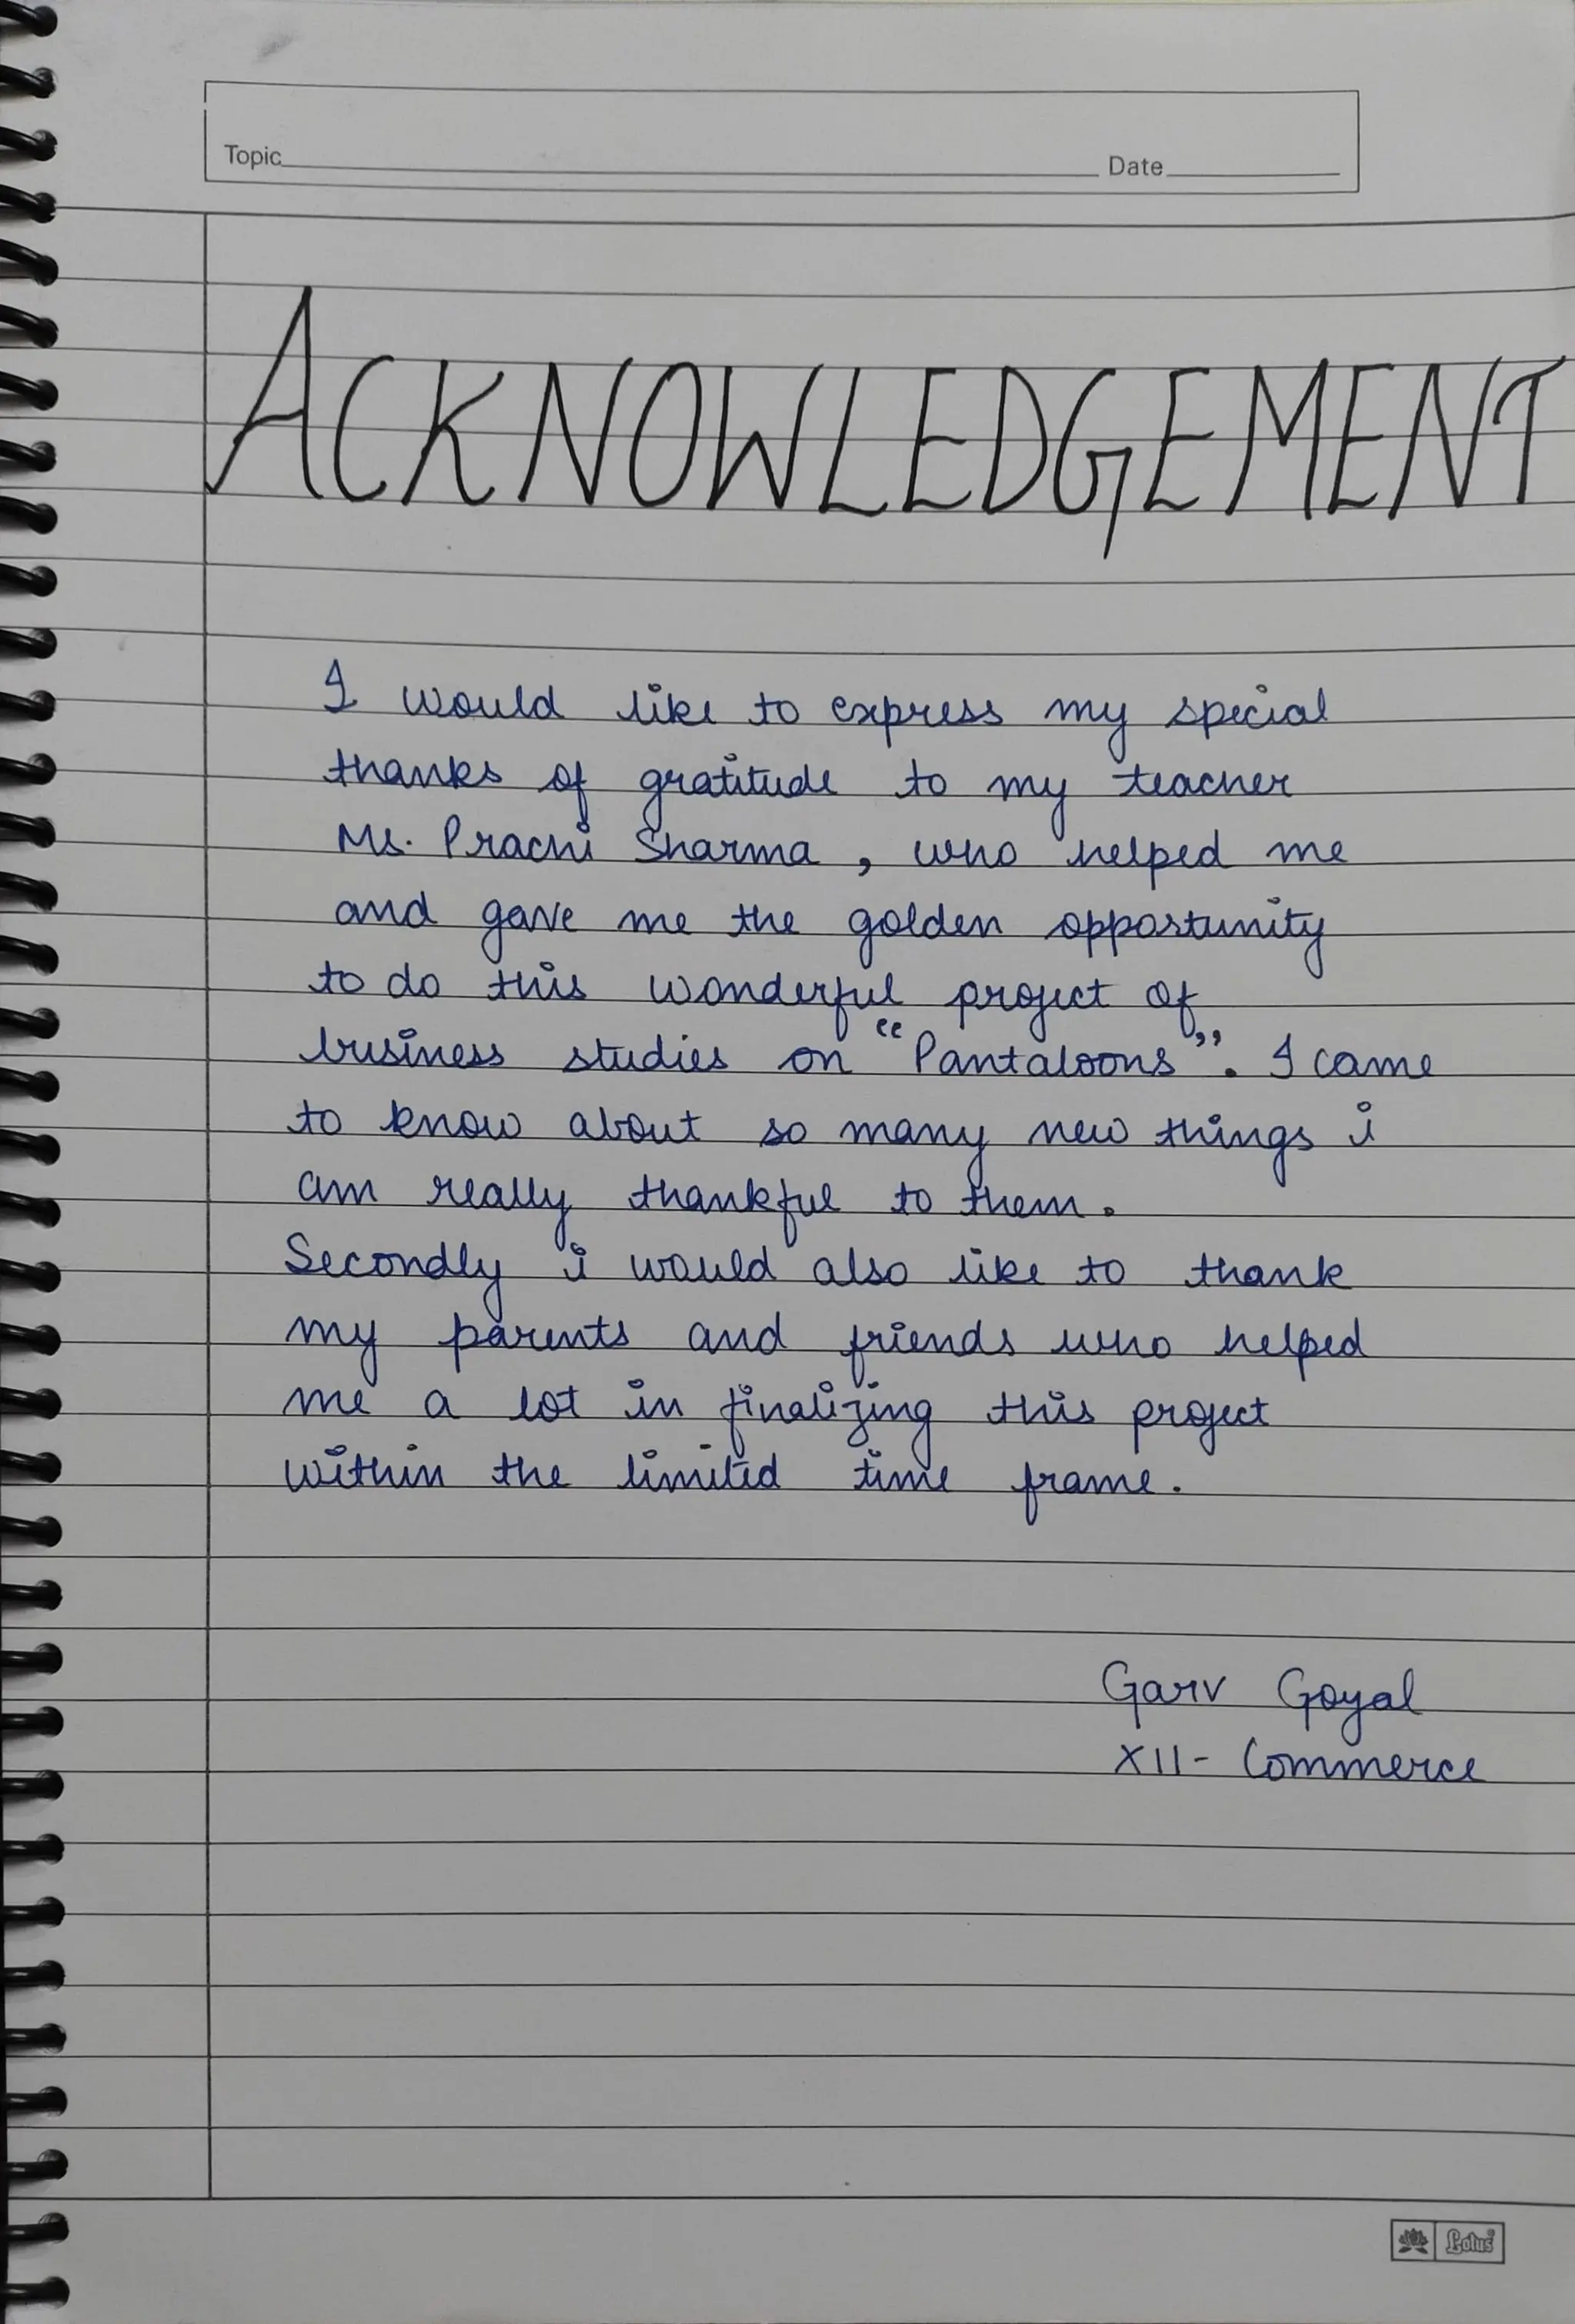 Topic Date
ACKNOWLEDGEMENT
I would like to express my special
thanks of gratitude to my teacher
Ms. Prachi Sharma, who helped me
and gave me the golden opportunity
to do this wonderful project of
business studies on "Pantaloons". I came
to know about so many new things i
am really thankful to them.
Secondly i would also like to thank
my parents and friends who helped
me a lot in finalizing this project
within the limited time frame.
Garv Goyal
XII- Commerce
Lotus